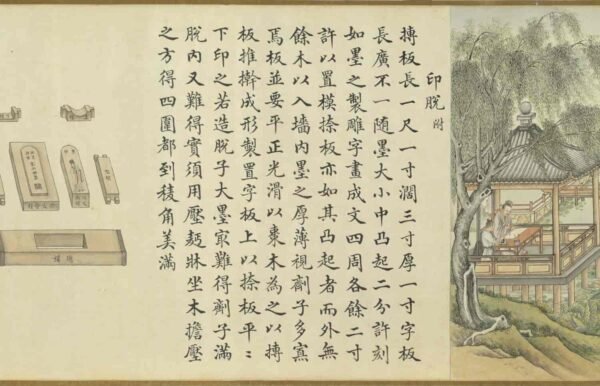 印脫附
摶板長一尺一寸濶三寸厚一寸字板
長廣不一隨墨大小中凸起二分許刻
如墨之製雕字畫成文四周各餘二寸
許以置模捺板亦如其凸起者而外無
餘木以入墻內墨之厚薄視劑子多寡
焉板並要平正光滑以棗木為之以摶
板推擀成形製置字板上以捺板平〻
下印之若造脫子大墨㝡難得劑子滿
脫內又難得實須用壓麪牀坐木擔壓
之方得四圍都到稜角美滿